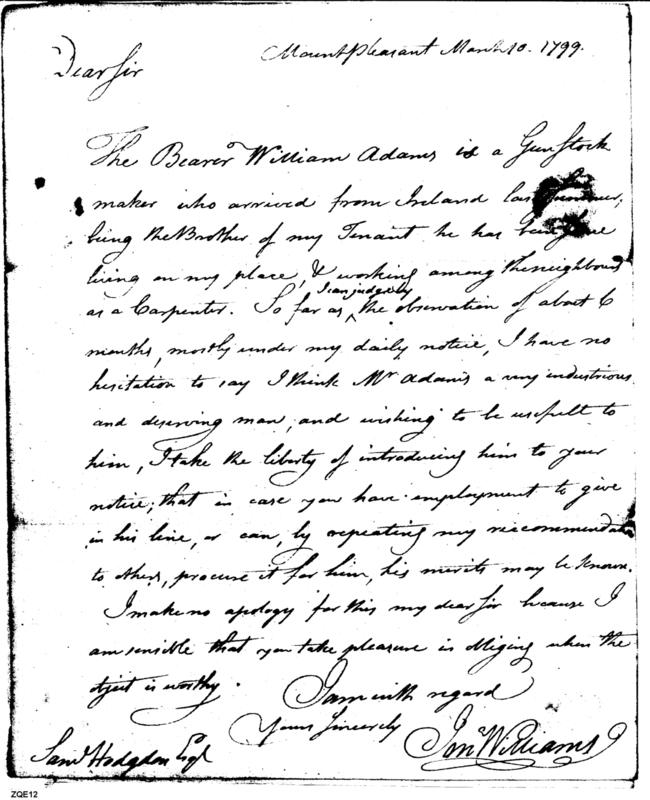 Mount Pleasant March 10. 1799.
Dear Sir
The Bearer William Adams is a Gun Stock
maker who arrived from Ireland last Summer,
being the Brother of my Tenant he has been
living on my place, & working among the neighbours
as a Carpenter. So far as I can judge by the observation of about 6
months, mostly under my daily notice, I have no
hesitation to say I think Mr Adams a very industrious
and deserving man, and wishing to be usefull to
him, I take the liberty of introducing him to your
notice; that in case you have employment to give
in his line, or can, by repeating my reccommendation
to others, procure it for him, his merits may be known.
I make no apology for this my dear Sir because I
am sensible that you take pleasure in obliging when the
object is worthy.
I am with regard
Yours Sincerely
Jon Williams
Saml Hodgdon Esqr
ZQE12